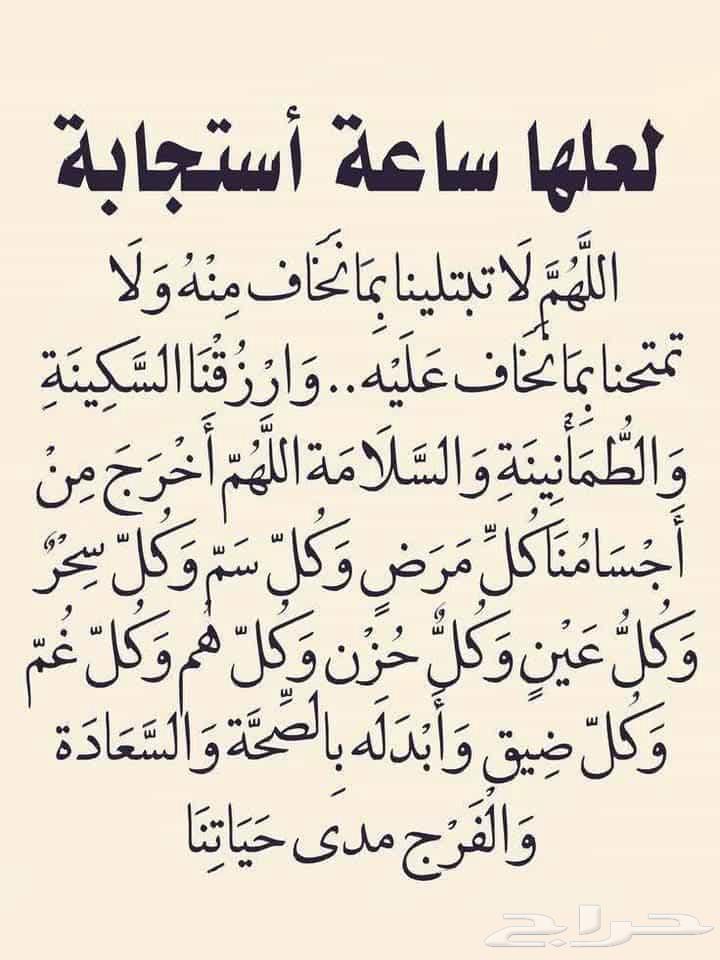 لعلها ساعة أستجابة
اللَّهُمَّ لَا تبتلينا بِمَا نَخَاف مِنْهُ وَلَا
تمتحنا بِمَا نَخَاف عَلَيْه.. وَارْزُقْنَا السَّكِينَةِ
وَالطُّمَأْنِينَةِ وَالسَّلَامَة اللَّهُمّ أَخْرَجَ مِنْ
أَجْسَامُنَا كُلِّ مَرَضٍ وَكُلّ سَمّ وَكُلّ سِحْرٌ
وَكُلُّ عَيْنٍ وَكُلٌّ حُزْن وَكُلّ هُم وَكُلّ غُمّ
وَكُلّ ضِيق وَأَبْدَلَه بِالصِّحَّة وَالسَّعَادَة
وَالْفَرْج مدى حَيَاتِنَا
حراج